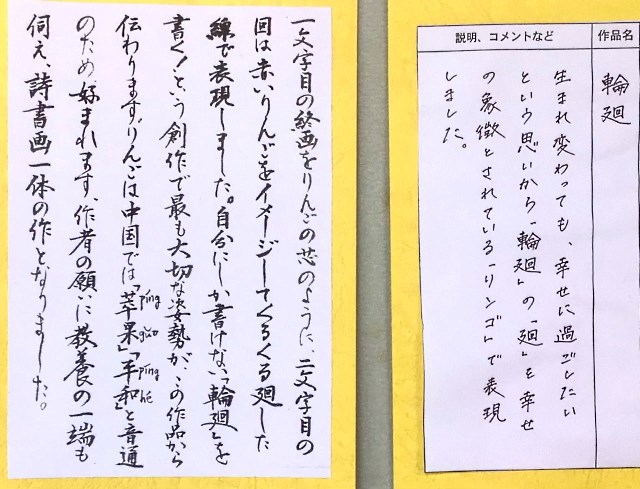 作品名
輪廻
説明、コメントなど
生まれ変わっても、幸せに過ごしたい
という思いから「輪廻」の「廻」を幸せ
の象徴とされている「リンゴ」で表現
しました。
一文字目の絵画をりんごの芯のように、二文字目の
回は赤いりんごをイメージしてくるくる廻した
線で表現しました。自分にしか書けない「輪廻」を
書く！という創作で最も大切な姿勢が、この作品から
伝わります。りんごは中国では「苹果」「平和」と音通
píng guǒ píng hé
のため好まれます。作者の願いに教養の一端も
伺え、詩書画一体の作となりました。